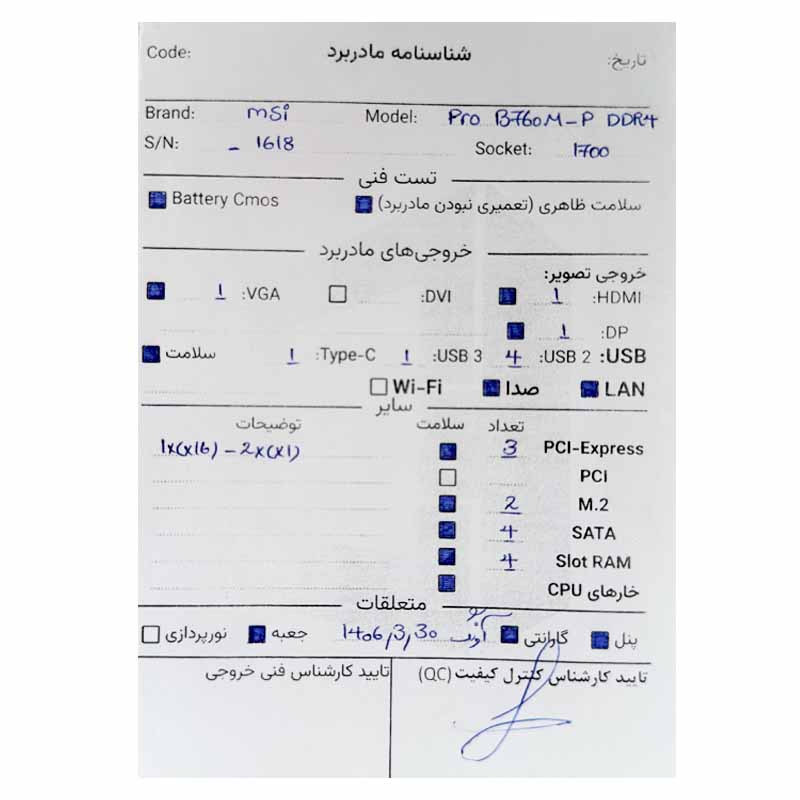 شناسنامه مادربرد
تاریخ:
Code:
Brand: msi Model: Pro B760M-P DDR4
S/N: - 1618 Socket: 1700
تست فنی
سلامت ظاهری (تعمیری نبودن مادربرد) Battery Cmos
خروجی‌های مادربرد
خروجی تصویر:
HDMI: 1 DVI: VGA: 1
DP: 1
USB: USB 2: 4 USB 3: 1 Type-C: 1 سلامت
LAN صدا Wi-Fi
سایر
تعداد سلامت توضیحات
PCI-Express 3 1x(x16) - 2x(x1)
PCI
M.2 2
SATA 4
Slot RAM 4
خارهای CPU
متعلقات
پنل گارانتی 1406,3,30 جعبه نورپردازی
تایید کارشناس کنترل کیفیت (QC) تایید کارشناس فنی خروجی